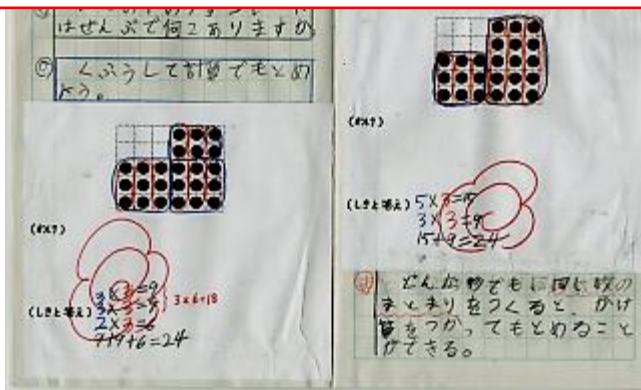 はぜんぶで何こありますか
め
くふうして計算でもとめ
よう。
(しきと答え)
3×3=9
3×3=9
2×3=6
3×6=18
9+9+6=24
(しきと答え)
5×3=15
3×3=9
15+9=24
どんな形でも同じ数の
まとまりをつくると、かけ
算をつかってもとめること
ができる。